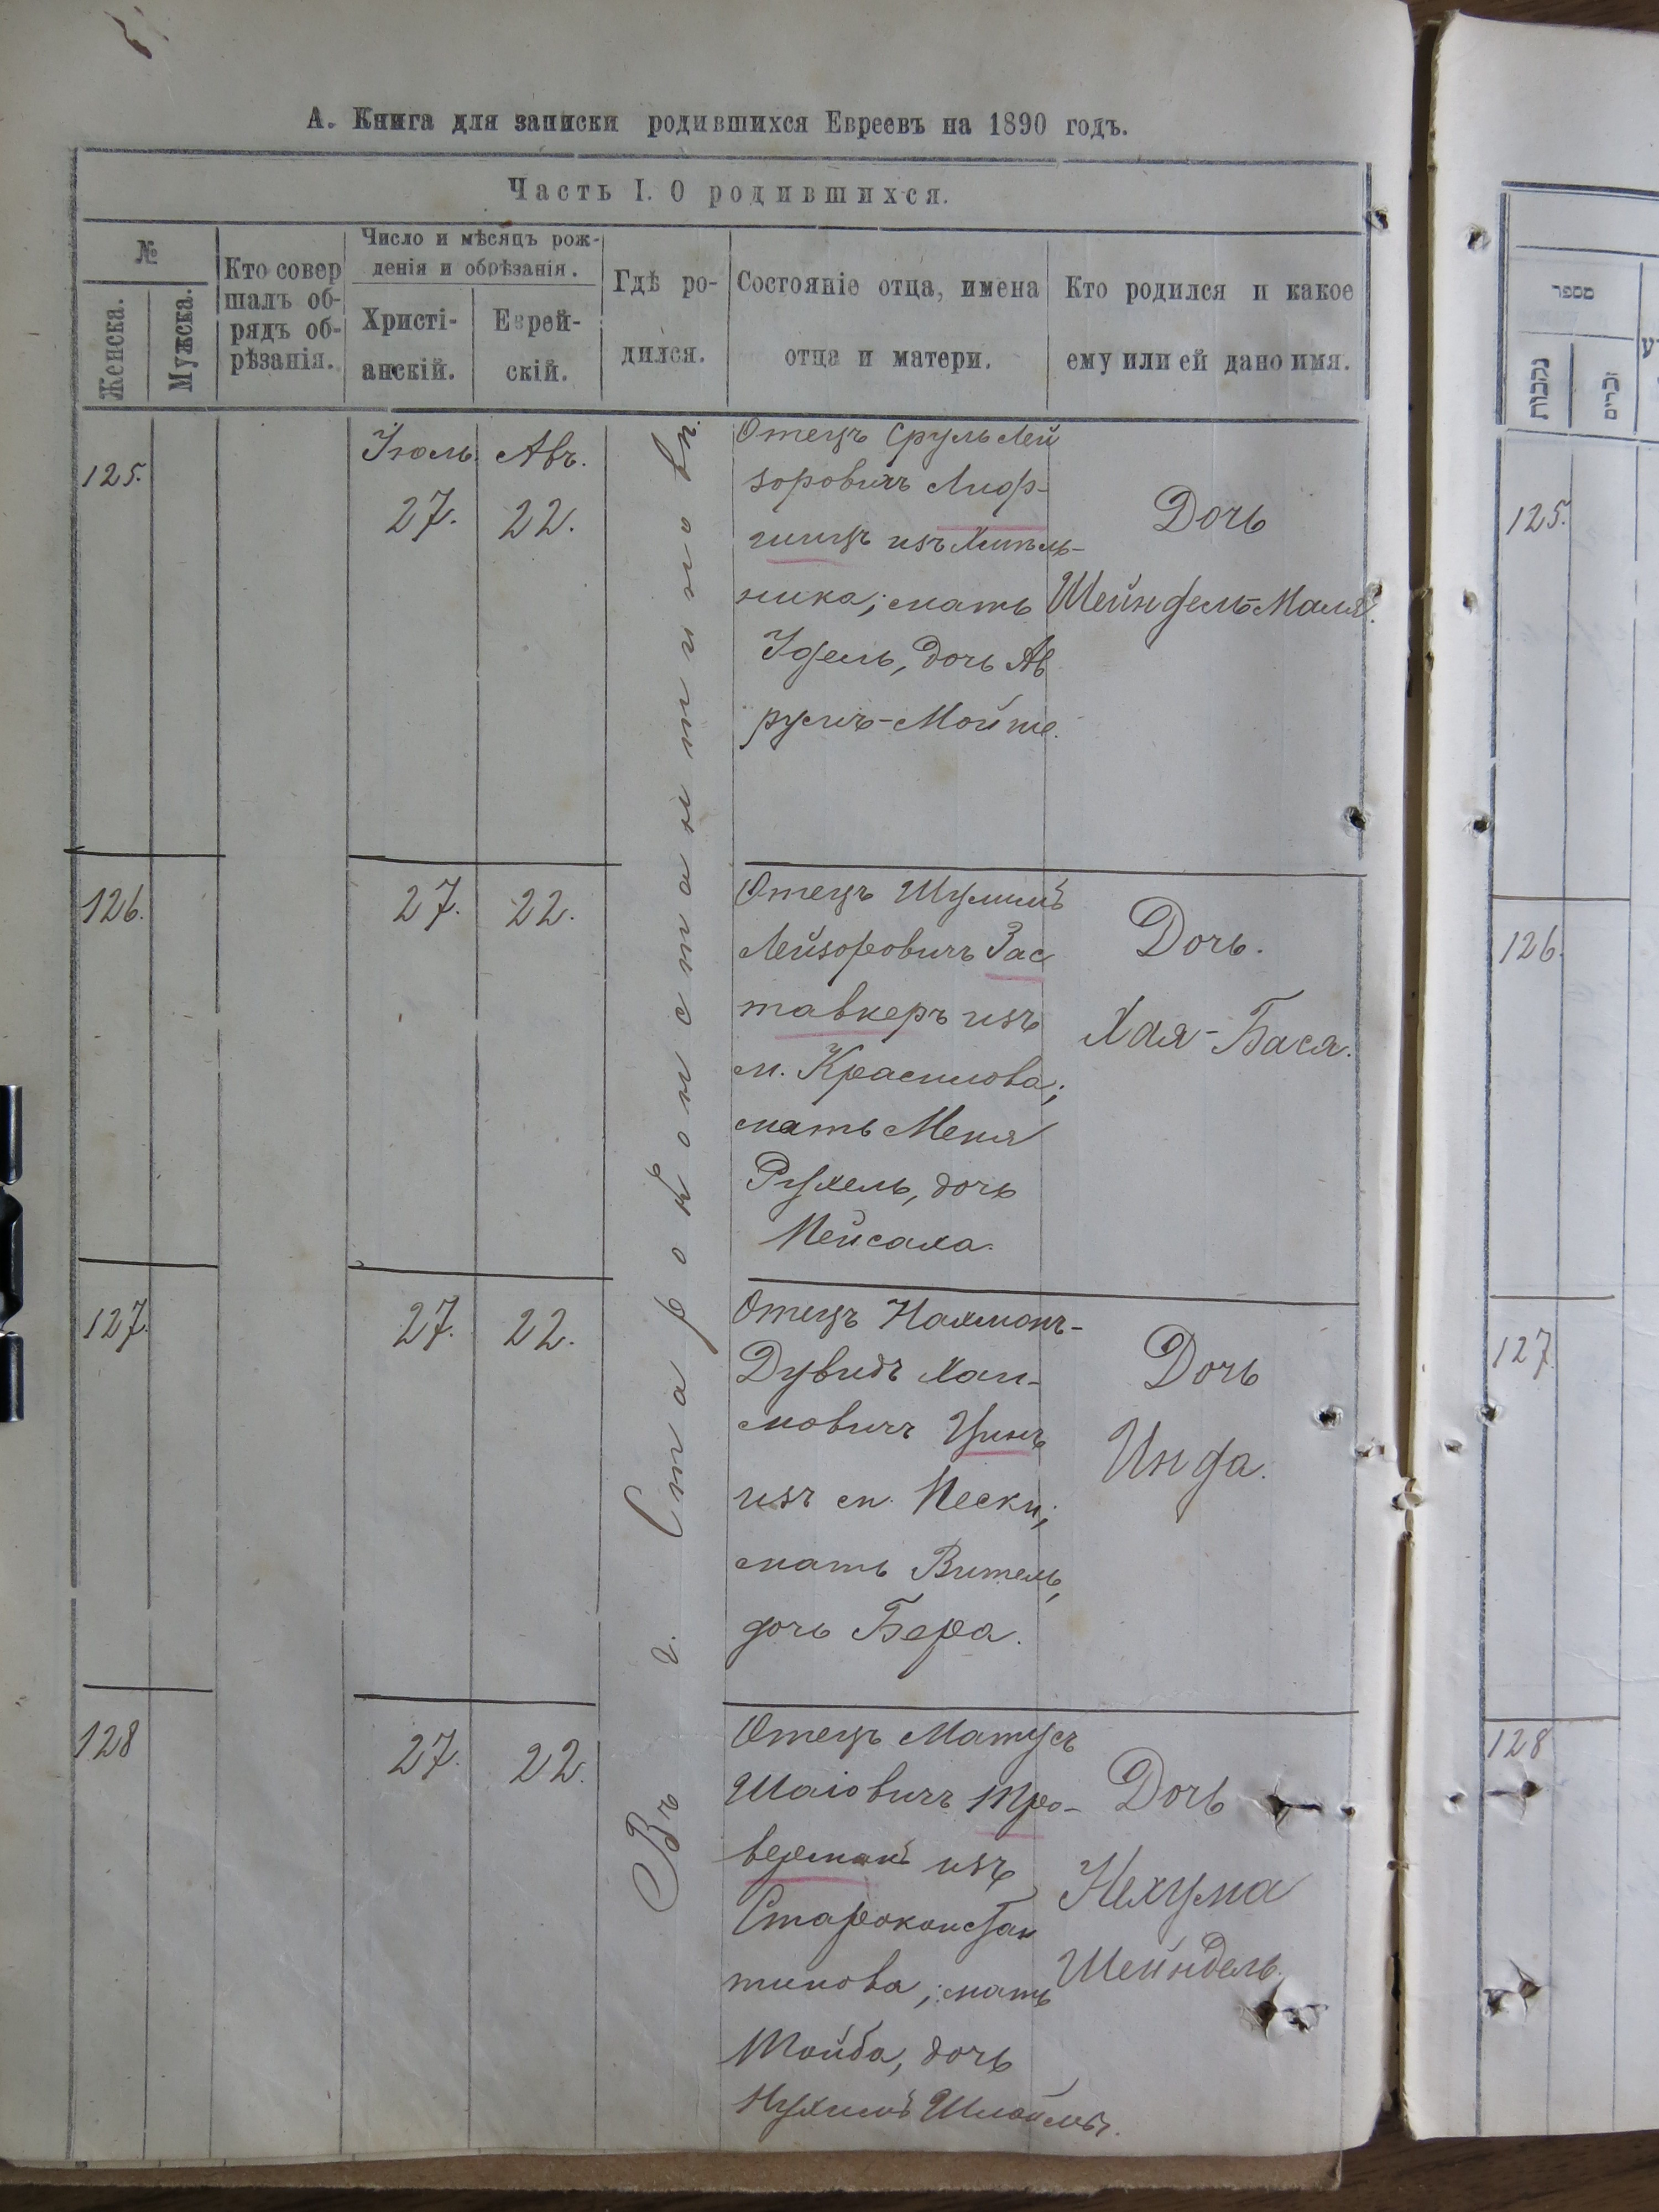 А. Книга для записки родившихся Евреевъ на 1890 годъ.
Часть I. О родившихся.
№
Женска.
Мужска.
Кто совер
шалъ об-
рядъ об-
рѣзанія.
Число и мѣсяцъ рож-
денія и обрѣзанія.
Христі-
анскій.
Еврей-
скій.
Гдѣ ро-
дился.
Состояніе отца, имена
отца и матери.
Кто родился и какое
ему или ей дано имя.
Въ г. Староконстантиновѣ.
125.
Іюль.
27.
Авъ.
22.
Отецъ Сруль Лей
зоровичъ Лиф-
шицъ изъ Хмѣль-
ника; мать
Идель, дочь Ав
румъ-Мойше.
Дочь
Шейндель-Маля.
126.
27.
22.
Отецъ Шулимъ
Лейзоровичъ Зас
тавкеръ изъ
м. Красилова;
мать Меня
Рухель, дочь
Пейсаха.
Дочь.
Хая-Бася.
127.
27.
22.
Отецъ Нахманъ-
Дувидъ Хаи-
мовичъ Цинъ
изъ сл. Пески;
мать Витель,
дочь Бера.
Дочь
Инда.
128
27.
22.
Отецъ Матусъ
Шаіовичъ Про-
верманъ изъ
Староконстан
тинова; мать
Тойба, дочь
Нухимъ Шмойлы.
Дочь
Нехума
Шейндель.
מספר
נקבות
זכרים
125.
126.
127.
128